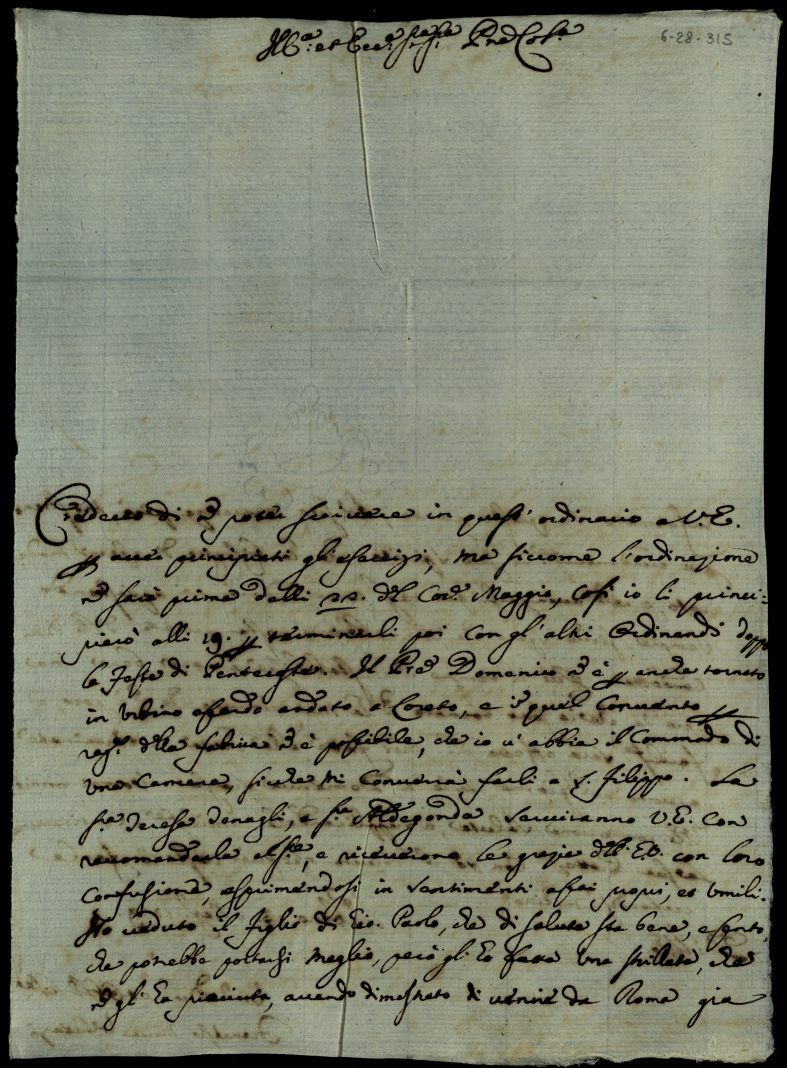 Ill.mo et Ecc.mo Sig.re Sig.re P.ne Col.mo
6-28-315
Credevo di ñ poter scrivere in quest'ordinario a V.E.
p aver principiati gl'esercizi, ma siccome l'ordinazione
ñ sarà prima delli 22. del Cor.e Maggio, così io li princi=
pierò alli 19. p terminarli poi con gl'altri Ordinandi doppo
le Feste di Pentecoste. Il Pre Domenico ñ è p anche tornato
in Urbino essendo andato a Loreto, e in quel Convento p
rag.e della fabrica ñ è possibile, che io v'abbia il Commodo di
una Camera, sicche mi converrà farli a S. Filippo. La
S.ra Teresa Donagli, e S.ra Aldegonda serviranno V.E. con
raccomandarla a , e ricevono le grazie dell'E.V. con loro
confusione, esprimendosi in sentimenti assai proprii, et umili.
Ho veduto il figlio di Gio. Paolo, che di salute sta bene, e sento,
che potrebbe portarsi meglio, però gli ho fatta una strillata, che
ñ gl'ha piaciuta, avendo dimostrato di venire da Roma già